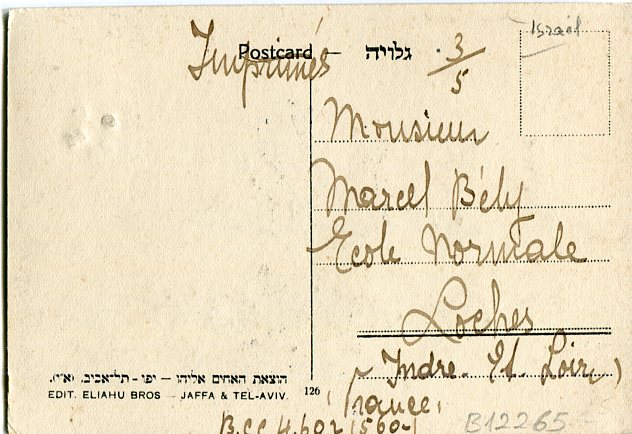 Israël
Postcard — גלויה
Imprimés
3/5
Monsieur
Marcel Bély
Ecole Normale
Loches
Indre. et. Loire)
France
הוצאת האחים אליהו — יפו - תל-אביב. (א״י).
EDIT. ELIAHU BROS — JAFFA & TEL-AVIV.
126
B12265